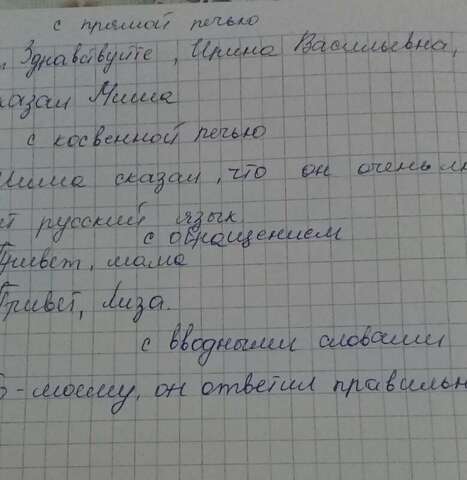 с прямой речью
„ Здравствуйте, Ирина Васильевна,
казал Миша
с косвенной речью
Миша сказал, что он очень лю
ит русский язык
с обращением
Привет, мама
Привет, Лиза.
с вводными словами
о-моему, он ответил правильн